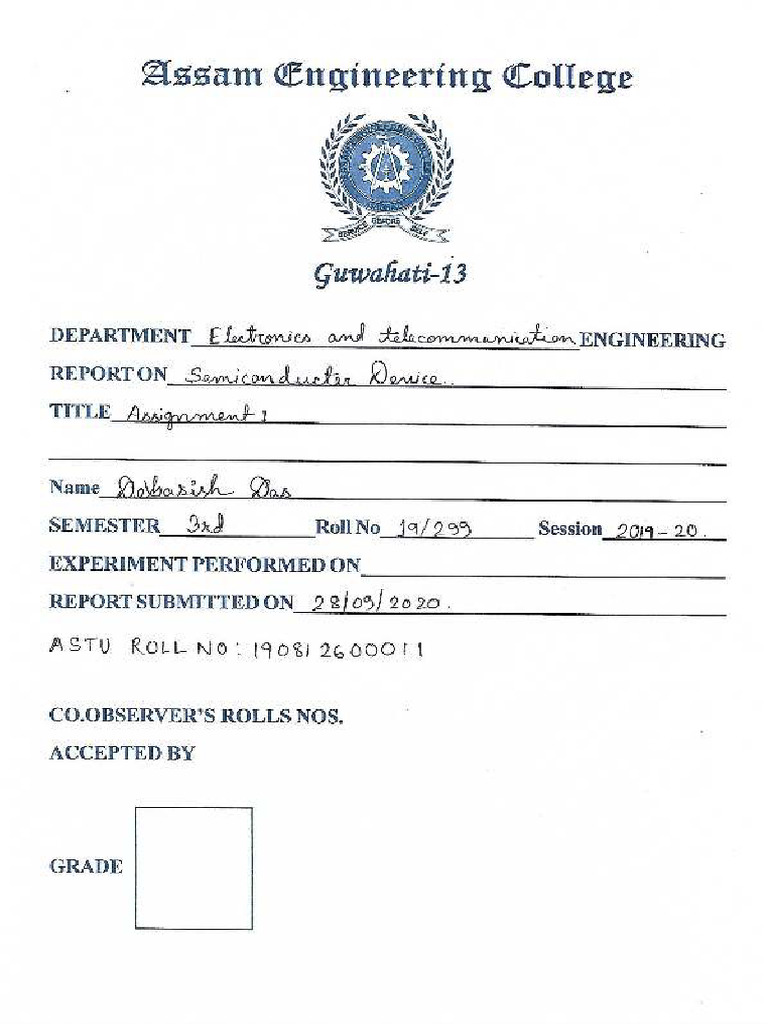 Assam Engineering College
SERVICE BEFORE SELF
Guwahati-13
DEPARTMENT Electronics and telecommunication ENGINEERING
REPORT ON Semiconducter Device.
TITLE Assignment 1
Name Debasish Das
SEMESTER 3rd Roll No 19/299 Session 2019-20.
EXPERIMENT PERFORMED ON
REPORT SUBMITTED ON 28/09/2020.
ASTU ROLL NO: 190812600011
CO.OBSERVER'S ROLLS NOS.
ACCEPTED BY
GRADE